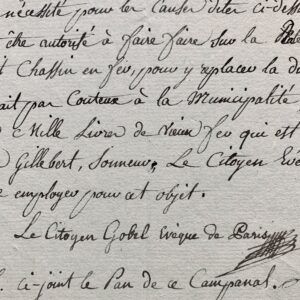 nécessité pour les causes dites ci-dess
être autorisé à faire faire sur la
t Chassin en fer, pour y replacer la d
ait par Couteux à la Municipalité
c Mille Livres de Vieux fer qui est
Gillebert, Sonneur, Le Citoyen Evê
e employer pour cet objet.
Le Citoyen Gobel Evêque de Paris
ci-joint le Pan de ce Campanal.